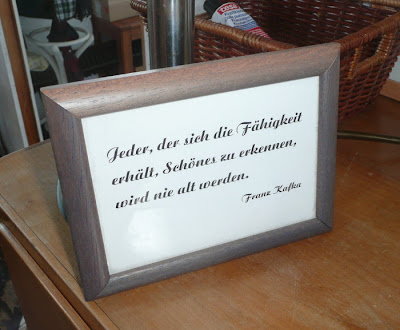 Jeder, der sich die Fähigkeit
erhält, Schönes zu erkennen,
wird nie alt werden.
Franz Kafka